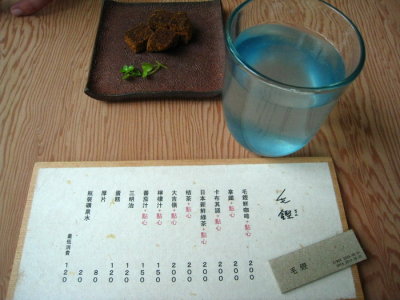 毛鏗
毛鏗鮮咖啡+點心 200
拿鐵+點心 200
卡布其諾+點心 200
日本新鮮綠茶+點心 200
桔茶+點心 200
大吉嶺+點心 200
檸檬汁+點心 150
番茄汁+點心 150
三明治 120
蛋糕 120
厚片 80
瓶裝礦泉水 20
最低消費 120
毛鏗